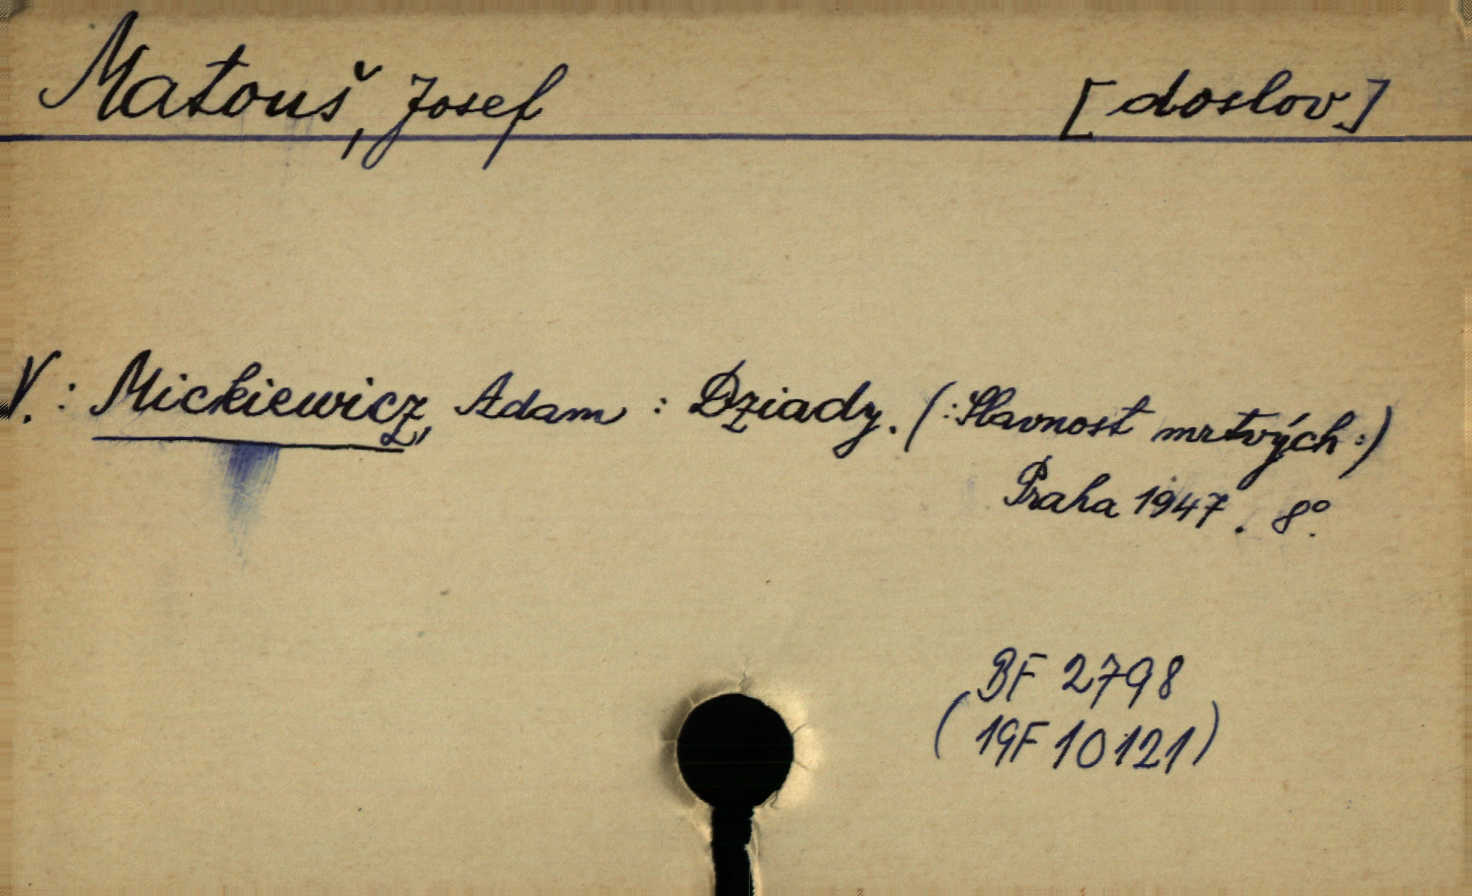 Matouš, Josef [doslov]
V.: Mickiewicz, Adam : Dziady. (: Slavnost mrtvých :)
Praha 1947. 8°.
BF 2798
(19F 10121)